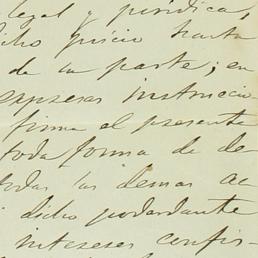 legal y jurídica,
dicho juicio hasta
de su parte; en
espresas instruccio-
firma el presente
toda forma de de-
todas las demas ac
dicho poderdante
intereses confis-